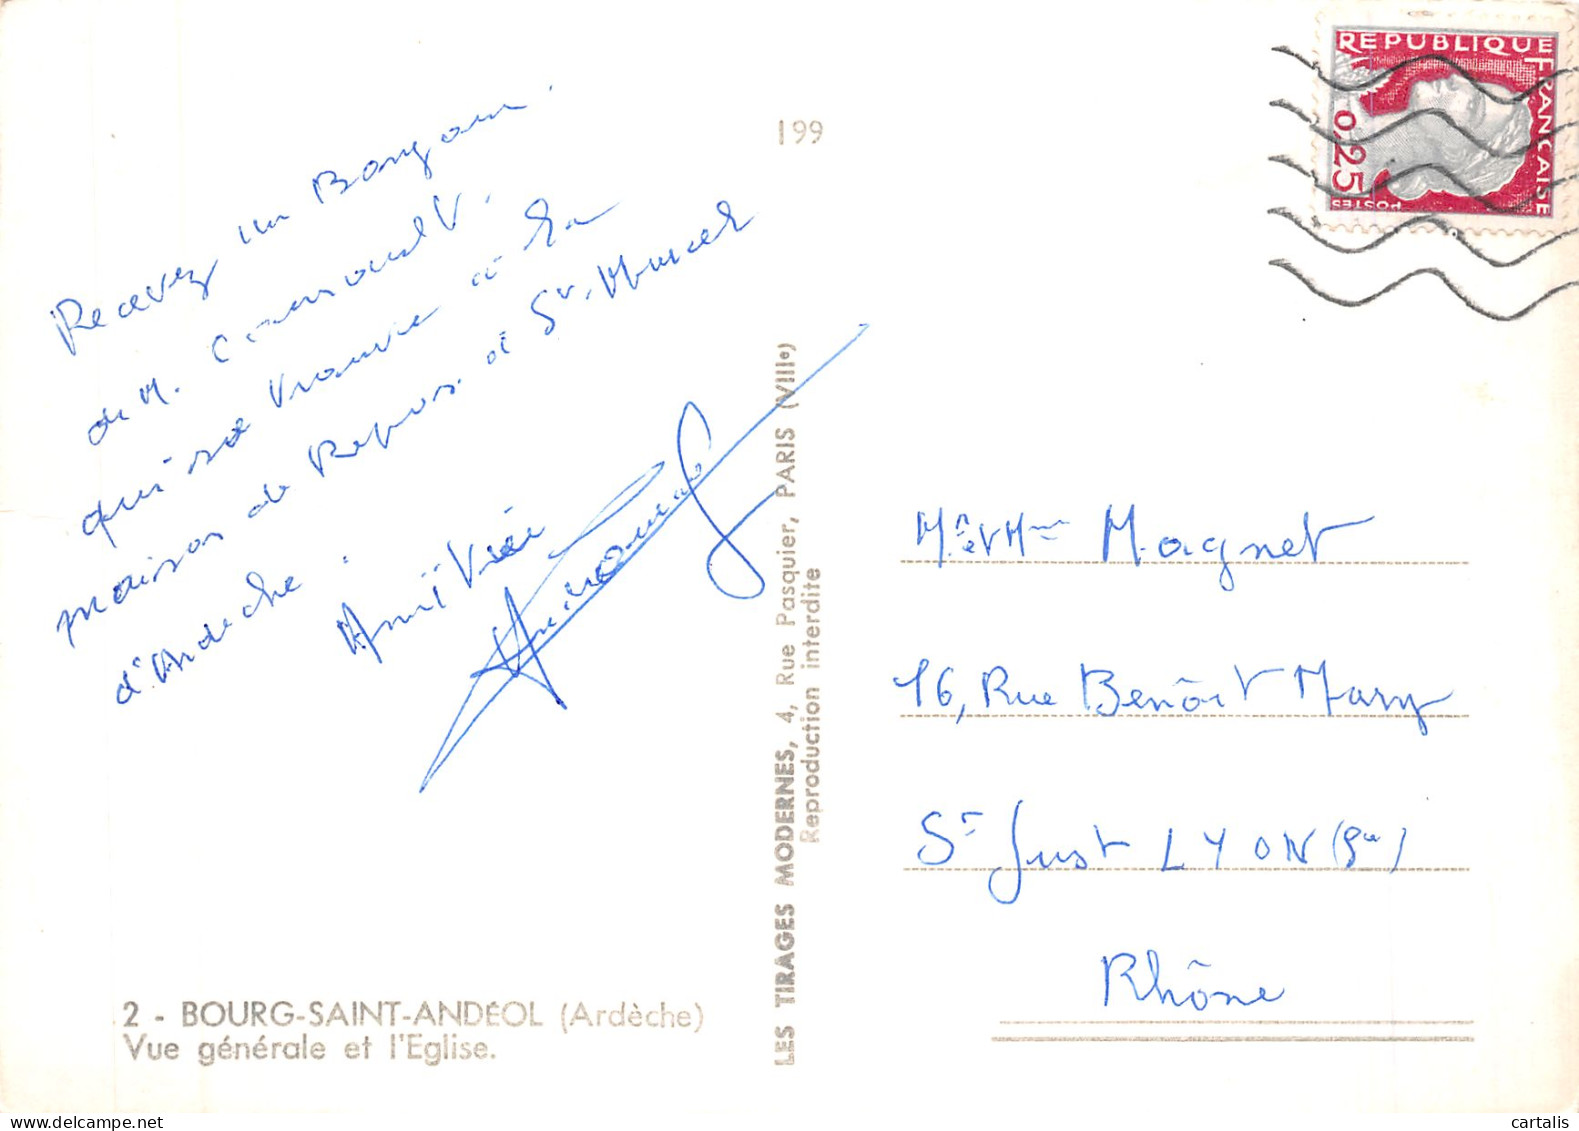 Recevez un Bonjour
de M.
qui se trouve à la
maison de Repos à St. Marcel
d'Ardèche.
199
REPUBLIQUE FRANÇAISE
0,25
POSTES
LES TIRAGES MODERNES, 4, Rue Pasquier, PARIS (VIIIe)
Reproduction interdite
Mr et Mme Magnet
16, Rue Benoît Mary
St Just LYON (5e)
Rhône
2 - BOURG-SAINT-ANDÉOL (Ardèche)
Vue générale et l'Eglise.
cartalis
www.delcampe.net